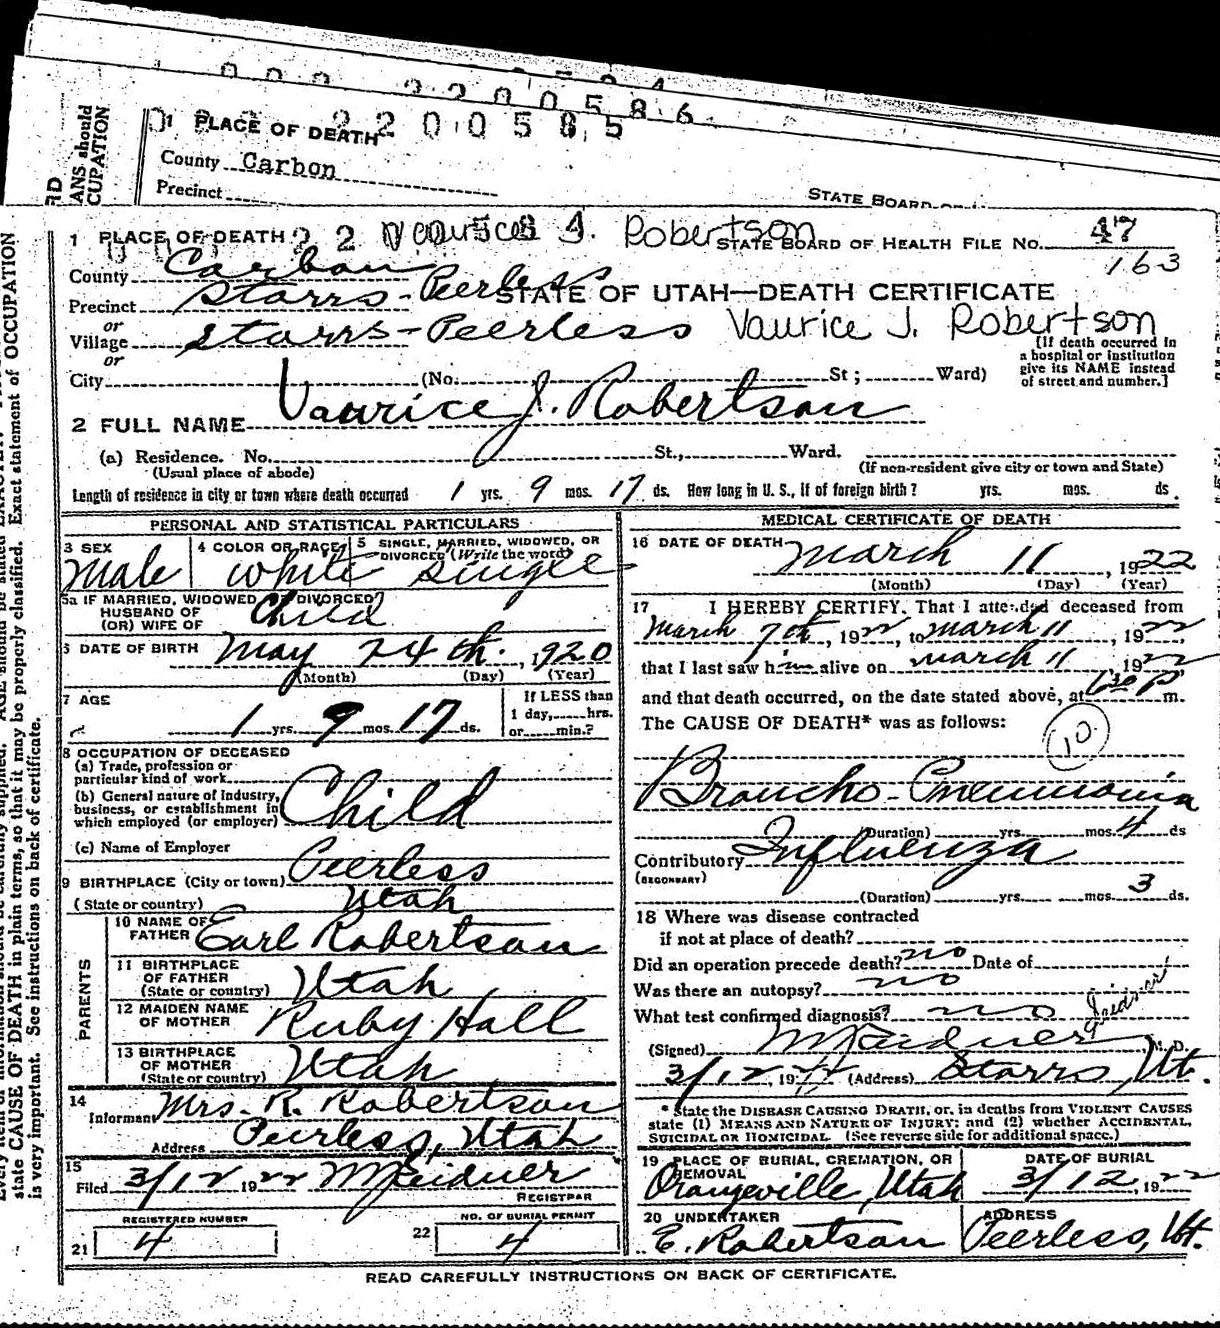 2 2 0 0 5 8 6
2 2 0 0 5 8 5
1 PLACE OF DEATH
County Carbon
Precinct
STATE BOARD
ANS should
CUPATION
RD
1 PLACE OF DEATH Vaurice J. Robertson STATE BOARD OF HEALTH FILE NO. 47
163
County Carbon
Precinct Starrs-Peerless STATE OF UTAH—DEATH CERTIFICATE
or
Village Starrs-Peerless Vaurice J. Robertson
or
[If death occurred in
a hospital or institution
give its NAME instead
of street and number.]
City (No. St; Ward)
2 FULL NAME Vaurice J. Robertson
(a) Residence. No. St., Ward.
(Usual place of abode) (If non-resident give city or town and State)
Length of residence in city or town where death occurred 1 yrs. 9 mos. 17 ds. How long in U. S., if of foreign birth? yrs. mos. ds.
PERSONAL AND STATISTICAL PARTICULARS
3 SEX 4 COLOR OR RACE 5 SINGLE, MARRIED, WIDOWED, OR
DIVORCED (Write the word)
Male White Single
5a IF MARRIED, WIDOWED OR DIVORCED
HUSBAND OF
(OR) WIFE OF Child
6 DATE OF BIRTH May 24th. , 1920
(Month) (Day) (Year)
7 AGE If LESS than
1 day, hrs.
1 yrs. 9 mos. 17 ds. or min.?
8 OCCUPATION OF DECEASED
(a) Trade, profession or
particular kind of work
(b) General nature of Industry,
business, or establishment in
which employed (or employer) Child
(c) Name of Employer
9 BIRTHPLACE (City or town) Peerless
(State or country) Utah
PARENTS
10 NAME OF
FATHER Earl Robertson
11 BIRTHPLACE
OF FATHER
(State or country) Utah
12 MAIDEN NAME
OF MOTHER Ruby Hall
13 BIRTHPLACE
OF MOTHER
(State or country) Utah
14
Informant Mrs. R. Robertson
Address Peerless, Utah
15
Filed 3/12 1922
REGISTRAR
REGISTERED NUMBER NO. OF BURIAL PERMIT
21 4 22 4
MEDICAL CERTIFICATE OF DEATH
16 DATE OF DEATH March 11 , 1922
(Month) (Day) (Year)
17 I HEREBY CERTIFY, That I attended deceased from
March 7th, 1922, to March 11, 1922,
that I last saw him alive on March 11, 1922
and that death occurred, on the date stated above, at 6:30 P m.
The CAUSE OF DEATH* was as follows:
10
Broncho-Pneumonia
(Duration) yrs. mos. 4 ds
Contributory Influenza
(SECONDARY)
(Duration) yrs. mos. 3 ds.
18 Where was disease contracted
if not at place of death?
Did an operation precede death? no Date of
Was there an autopsy? no
What test confirmed diagnosis? no
(Signed) M. D.
3/12, 1922 (Address) Starrs, Ut.
* State the DISEASE CAUSING DEATH, or, in deaths from VIOLENT CAUSES
state (1) MEANS AND NATURE OF INJURY; and (2) whether ACCIDENTAL,
SUICIDAL OR HOMICIDAL. (See reverse side for additional space.)
19 PLACE OF BURIAL, CREMATION, OR
REMOVAL DATE OF BURIAL
Orangeville, Utah 3/12, 1922
20 UNDERTAKER ADDRESS
E. Robertson Peerless, Ut.
READ CAREFULLY INSTRUCTIONS ON BACK OF CERTIFICATE.
state CAUSE OF DEATH in plain terms, so that it may be properly classified. Exact statement of OCCUPATION
is very important. See instructions on back of certificate.